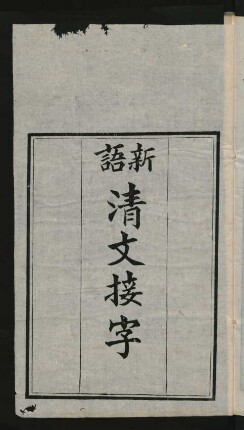 新語
清文接字